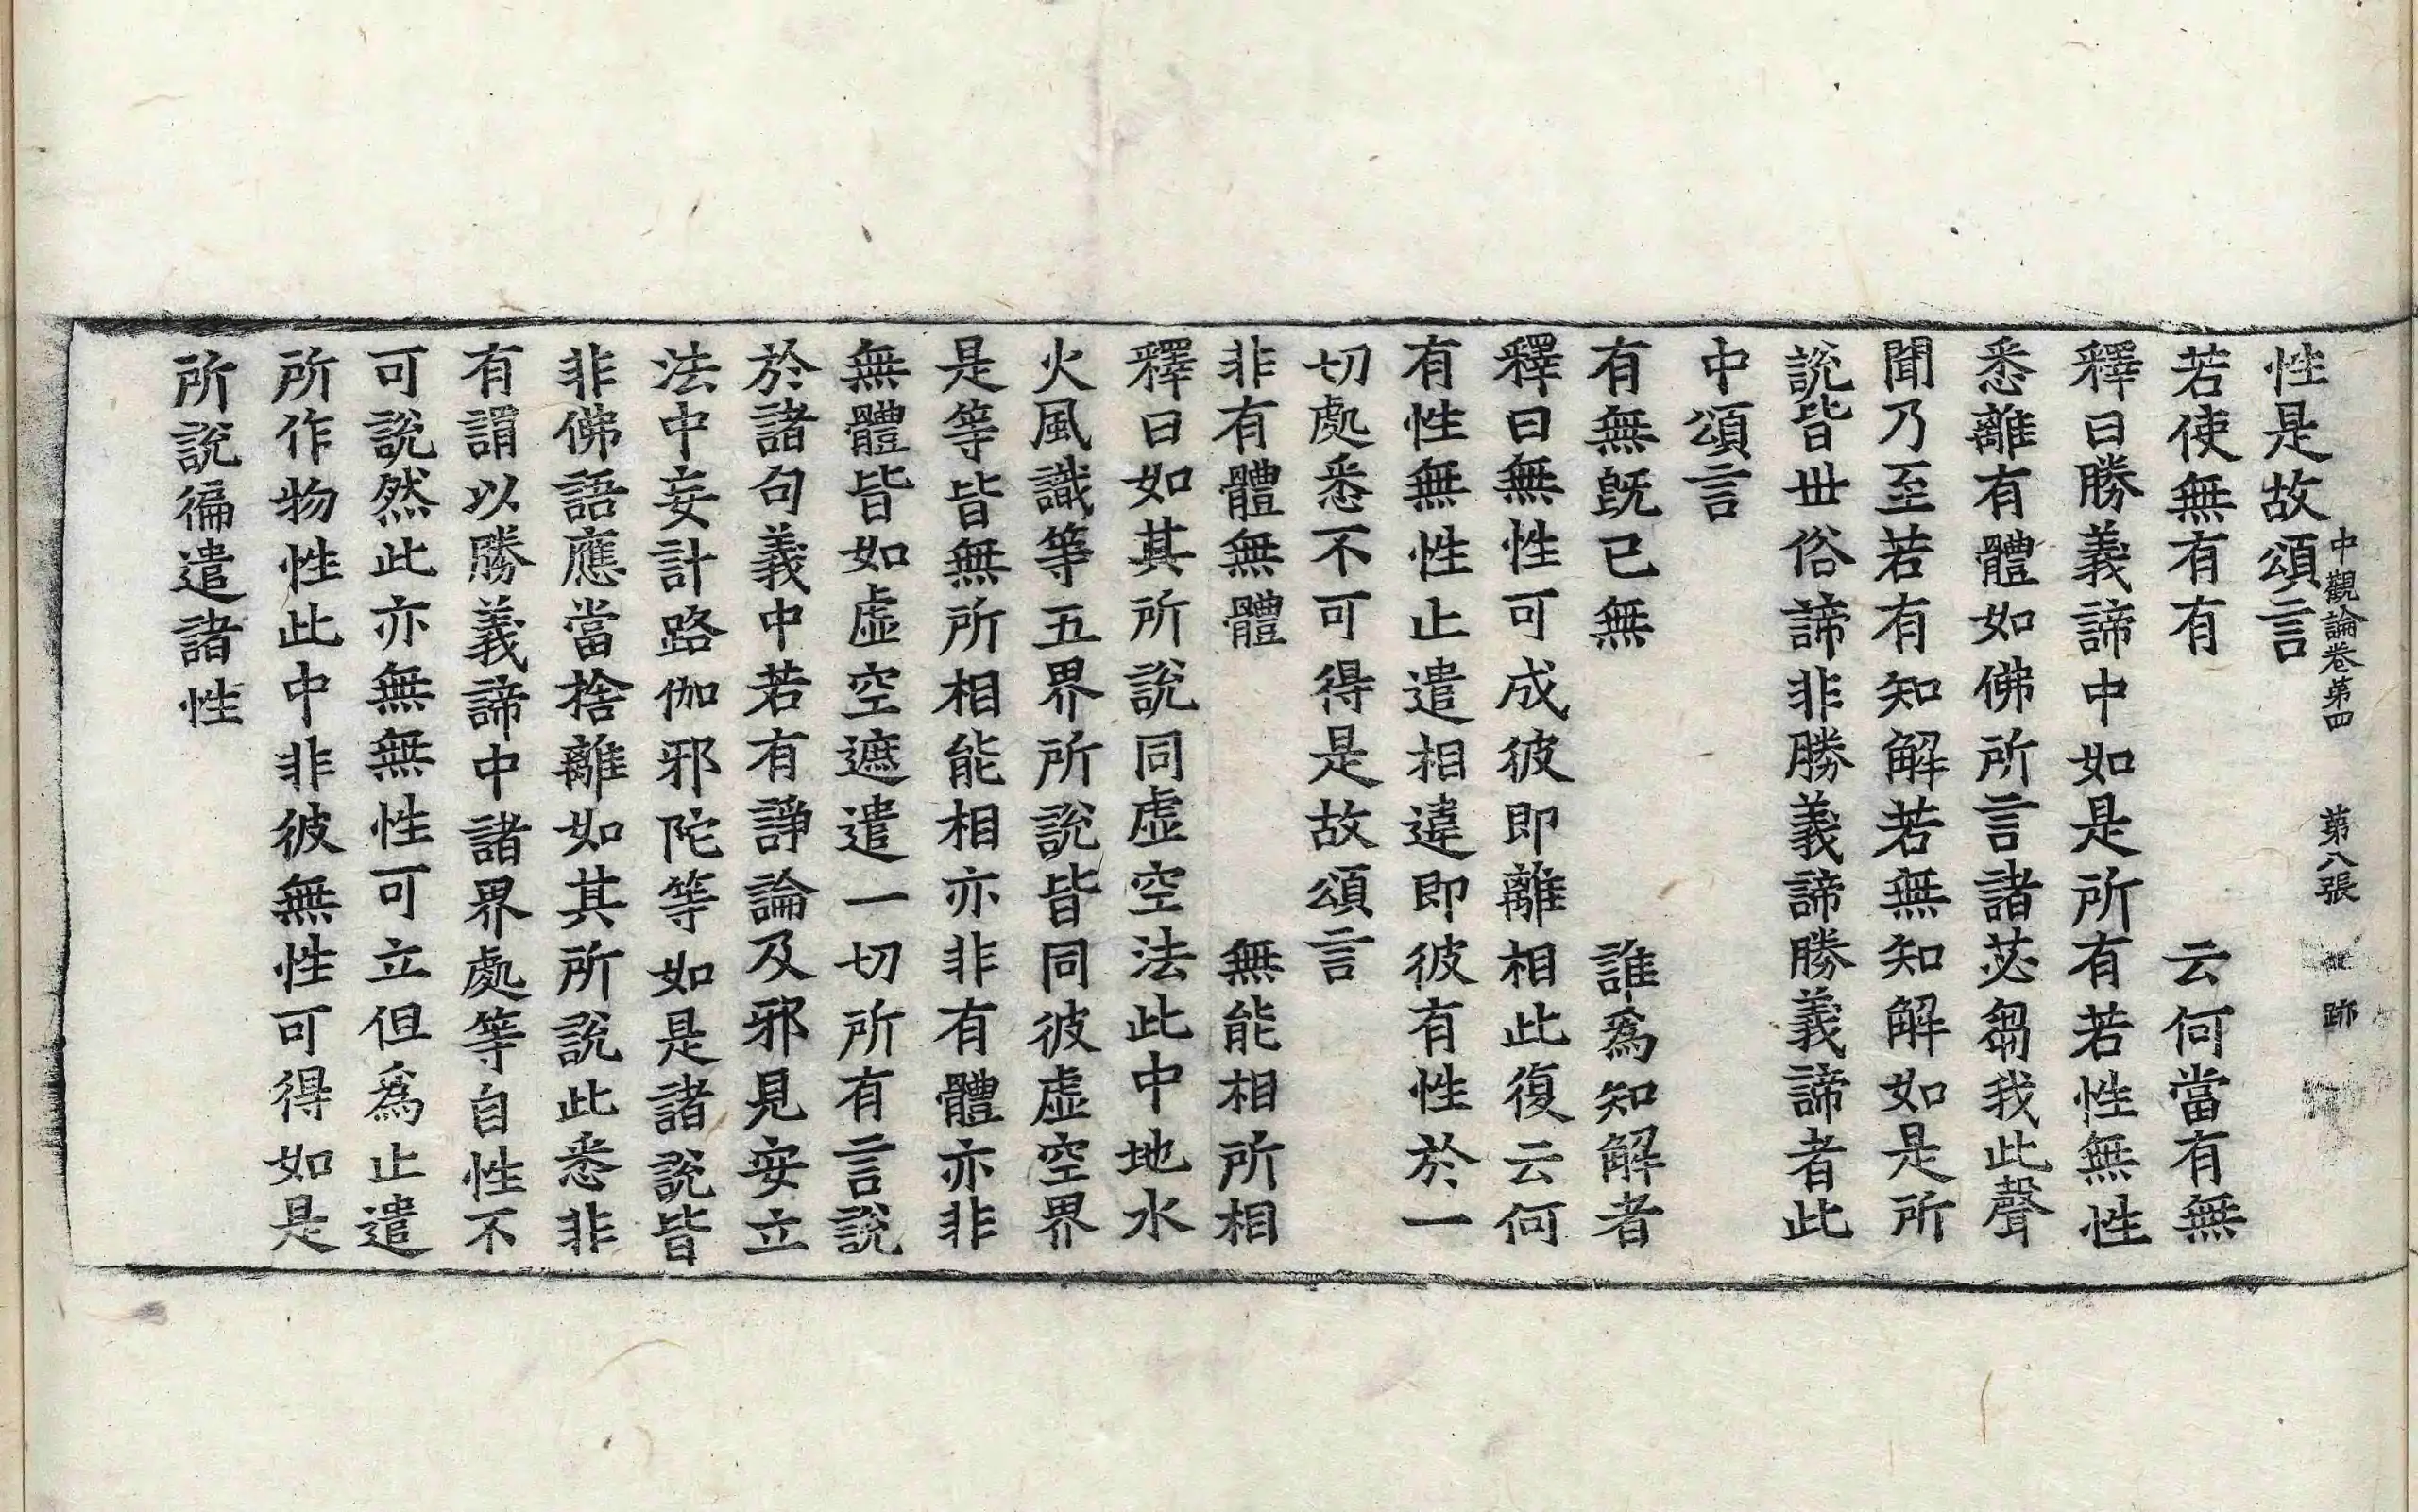 中觀論卷第四 第八張 跡
性是故頌言
若使無有有 云何當有無
釋曰勝義諦中如是所有若性無性
悉離有體如佛所言諸苾芻我此聲
聞乃至若有知解若無知解如是所
說皆世俗諦非勝義諦勝義諦者此
中頌言
有無既已無 誰爲知解者
釋曰無性可成彼即離相此復云何
有性無性止遣相違即彼有性於一
切處悉不可得是故頌言
非有體無體 無能相所相
釋曰如其所說同虛空法此中地水
火風識等五界所說皆同彼虛空界
是等皆無所相能相亦非有體亦非
無體皆如虛空遮遣一切所有言說
於諸句義中若有諍論及邪見安立
法中妄計路伽邪陀等如是諸說皆
非佛語應當捨離如其所說此悉非
有謂以勝義諦中諸界處等自性不
可說然此亦無無性可立但爲止遣
所作物性此中非彼無性可得如是
所說徧遣諸性